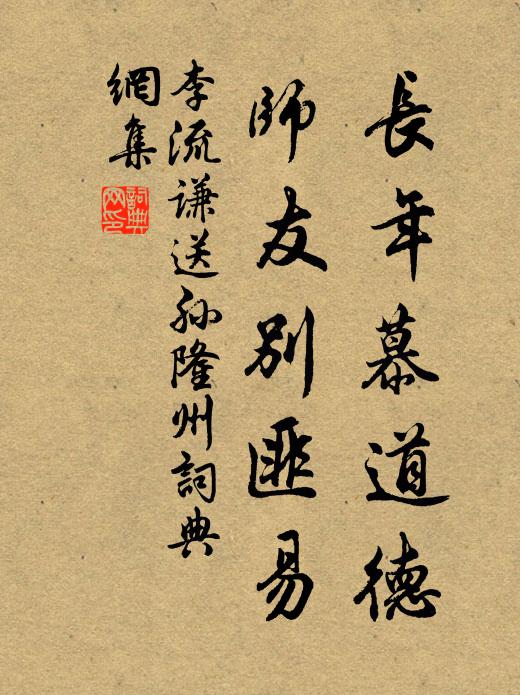 長年慕道德
師友別匪易
李流謙送孫隆州詞典
網集
詞典
網印